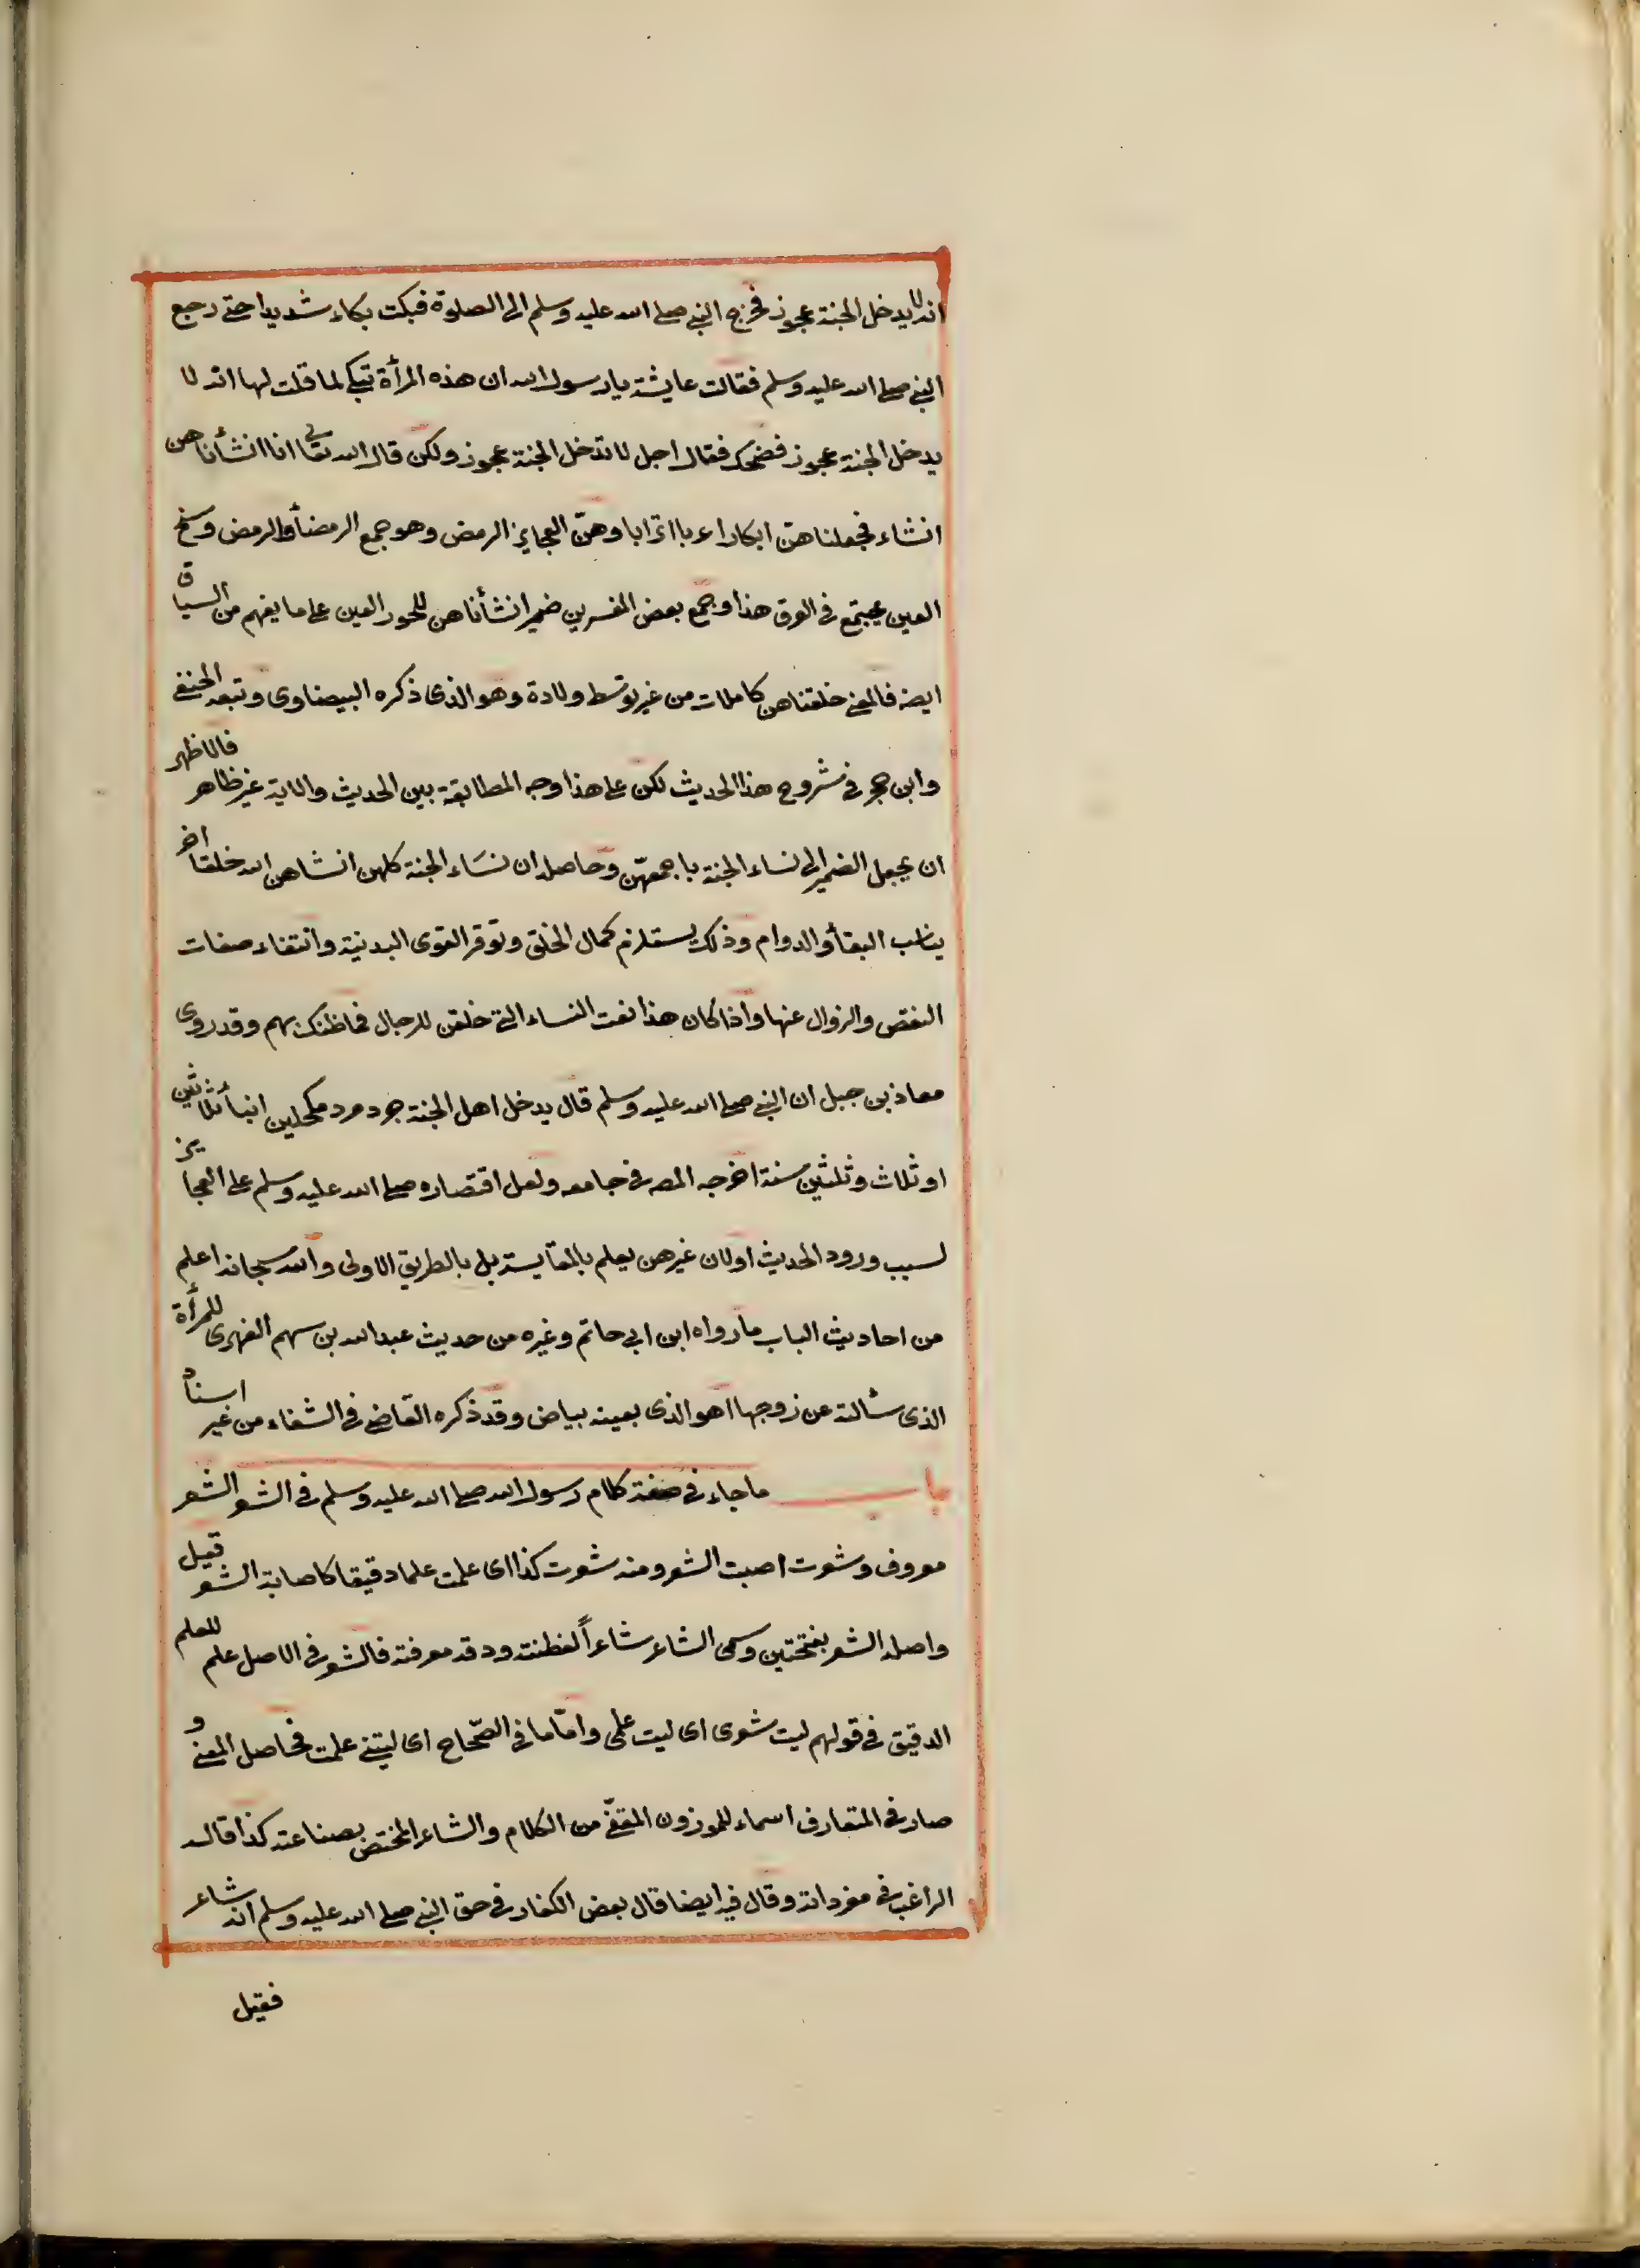 انه لا يدخل الجنة عجوز فخرج النبي صلى الله عليه وسلم الى الصلوة فبكت بكاء شديدا حتى رجع
النبي صلى الله عليه وسلم فقالت عايشة يا رسول الله ان هذه المرأة تبكى لما قلت لها انه لا
يدخل الجنة عجوز فضحك فقال اجل لا تدخل الجنة عجوز ولكن قال الله تعالى انا انشأناهن
انشاء فجعلناهن ابكارا عربا اترابا وهن العجايز الرمض وهو جمع الرمضأ والرمض وسخ
العين يجتمع فى الموق هذا وجمع بعض المفسرين ضمير انشأناهن للحور العين على ما يفهم من السياق
ايضه فالمعنى خلقناهن كاملات من غير توسط ولادة وهو الذى ذكره البيضاوى وتبعه الحنفى
وابن حجر فى شروح هذا الحديث لكن على هذا وجه المطابقة بين الحديث والاية غير ظاهر فالاظهر
ان يجعل الضمير الى نساء الجنة باجمعهن وحاصله ان نساء الجنة كلهن انشاهن الله خلقا اخر
يناسب البقأ والدوام وذلك يستلزم كمال الخلق وتوفر القوى البدنية وانتفاء صفات
النقص والزوال عنها واذا كان هذا نعت النساء التى خلقن للرجال فما ظنك بهم وقد روى
معاذ بن جبل ان النبي صلى الله عليه وسلم قال يدخل اهل الجنة جرد مرد مكحلين ابنأ ثلاثين
او ثلاث وثلثين سنة اخرجه المصه فى جامعه ولعل اقتصاره صلى الله عليه وسلم على العجايز
لسبب ورود الحديث او لان غيرهن يعلم بالمقايسة بل بالطريق الاولى والله سبحانه اعلم
من احاديث الباب ما رواه ابن ابى حاتم وغيره من حديث عبدالله بن سهم الفهرى للمرأة
الذى سألته عن زوجها اهو الذى بعينه بياض وقد ذكره القاضى فى الشفاء من غير اسناد
باب ماجاء فى صفة كلام رسول الله صلى الله عليه وسلم فى الشعر الشعر
معروف وشعرت اصبت الشعر ومنه شعرت كذا اى علمت علما دقيقا كاصابة الشعر قيل
واصله الشعر بفتحتين وسمى الشاعر شاعراً لفطنته ودقة معرفته فالشعر فى الاصل علم للعلم
الدقيق فى قولهم ليت شعرى اى ليت علمى وامّا ما فى الصّحاح اى ليتنى علمت فحاصل المعنى و
صار فى المتعارف اسماء للموزون المقفّى من الكلام والشاعر المختص بصناعته كذا قاله
الراغب فى مفرداته وقال فيه ايضا قال بعض الكفار فى حق النبي صلى الله عليه وسلم انه شاعر
فقيل